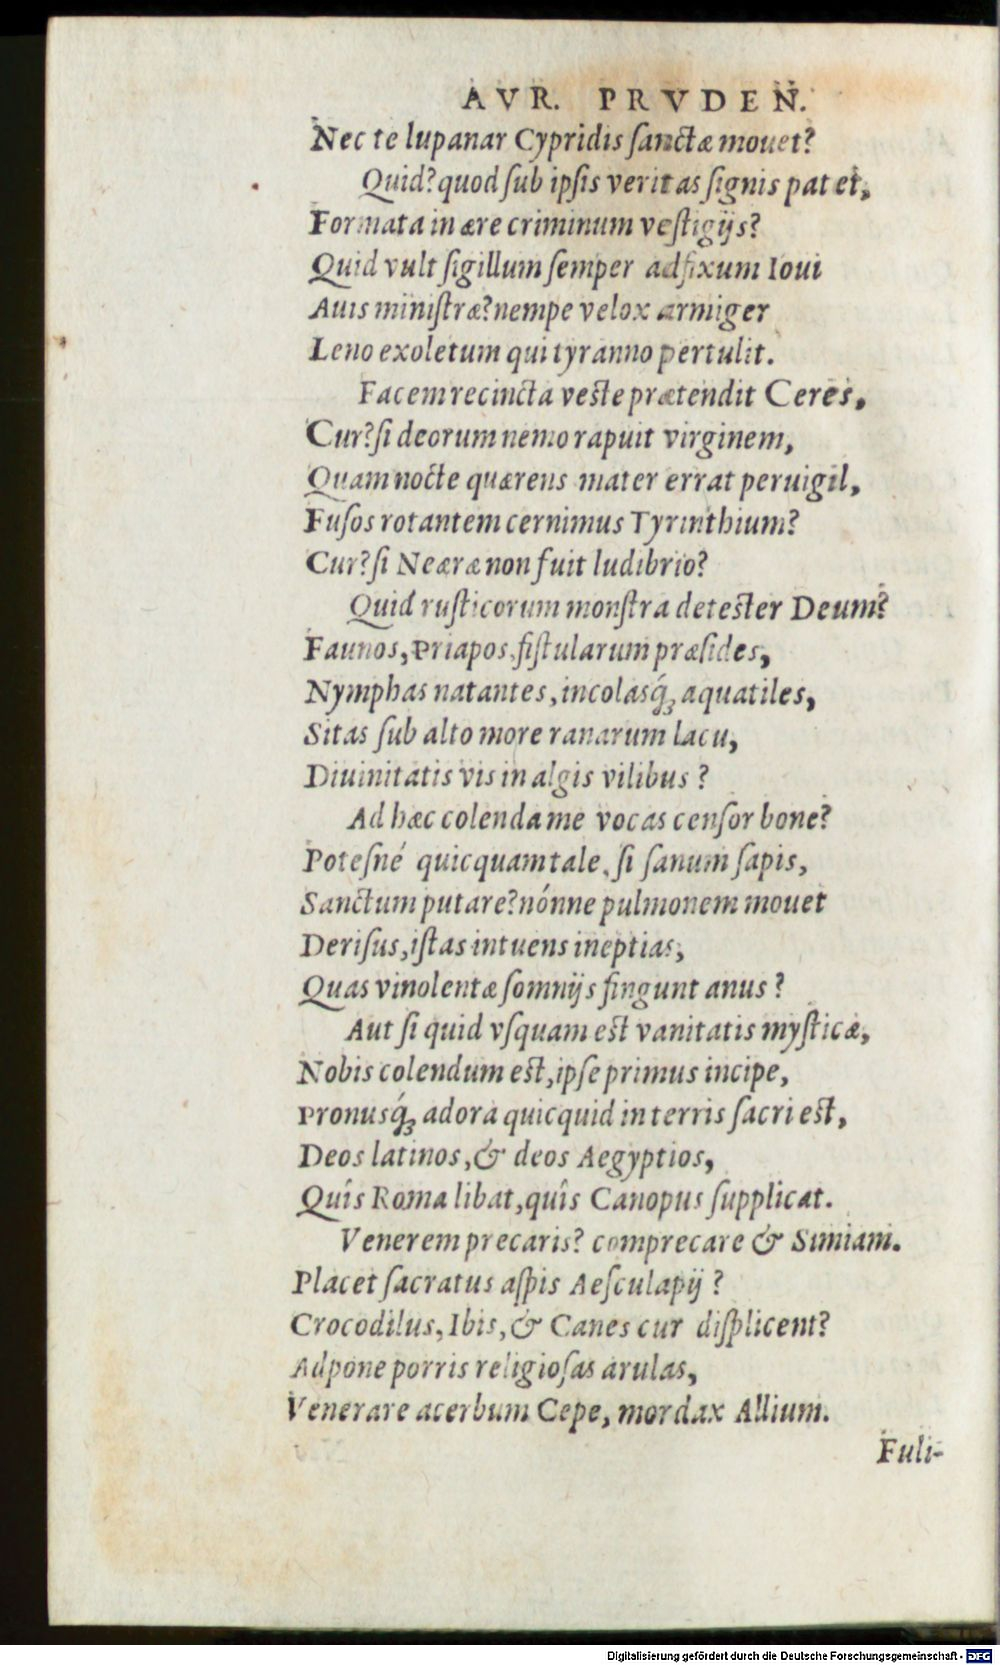 AVR. PRVDEN.
Nec te lupanar Cypridis ſanctæ mouet?
Quid? quod ſub ipſis veritas ſignis patet,
Formata in ære criminum veſtigijs?
Quid vult ſigillum ſemper adfixum Ioui
Auis miniſtræ? nempe velox armiger
Leno exoletum qui tyranno pertulit.
Facem recincta veſte prætendit Ceres,
Cur? ſi deorum nemo rapuit virginem,
Quam nocte quærens mater errat peruigil,
Fuſos rotantem cernimus Tyrinthium?
Cur? ſi Neæræ non fuit ludibrio?
Quid ruſticorum monſtra deteſter Deum?
Faunos, Priapos, fiſtularum præſides,
Nymphas natantes, incolasq́ꝫ aquatiles,
Sitas ſub alto more ranarum lacu,
Diuinitatis vis in algis vilibus ?
Ad hæc colenda me vocas cenſor bone?
Poteſné quicquam tale, ſi ſanum ſapis,
Sanctum putare? nónne pulmonem mouet
Deriſus, iſtas intuens ineptias,
Quas vinolentæ ſomnijs fingunt anus ?
Aut ſi quid vſquam eſt vanitatis myſticæ,
Nobis colendum eſt, ipſe primus incipe,
Pronusq́ꝫ adora quicquid in terris ſacri eſt,
Deos latinos, & deos Aegyptios,
Quîs Roma libat, quîs Canopus ſupplicat.
Venerem precaris? comprecare & Simiam.
Placet ſacratus aſpis Aeſculapij ?
Crocodilus, Ibis, & Canes cur diſplicent?
Adpone porris religioſas arulas,
Venerare acerbum Cepe, mordax Allium.
Fuli-
Digitalisierung gefördert durch die Deutsche Forschungsgemeinschaft - DFG